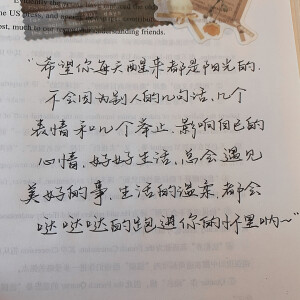 the US
most, much to our friends.
“希望你每天醒来都是阳光的,
不会因为别人的几句话,几个
表情和几个举止,影响自己的
心情,好好生活,总会遇见
美好的事,生活的温柔,都会
哒哒哒的跑进你的怀里呐~”